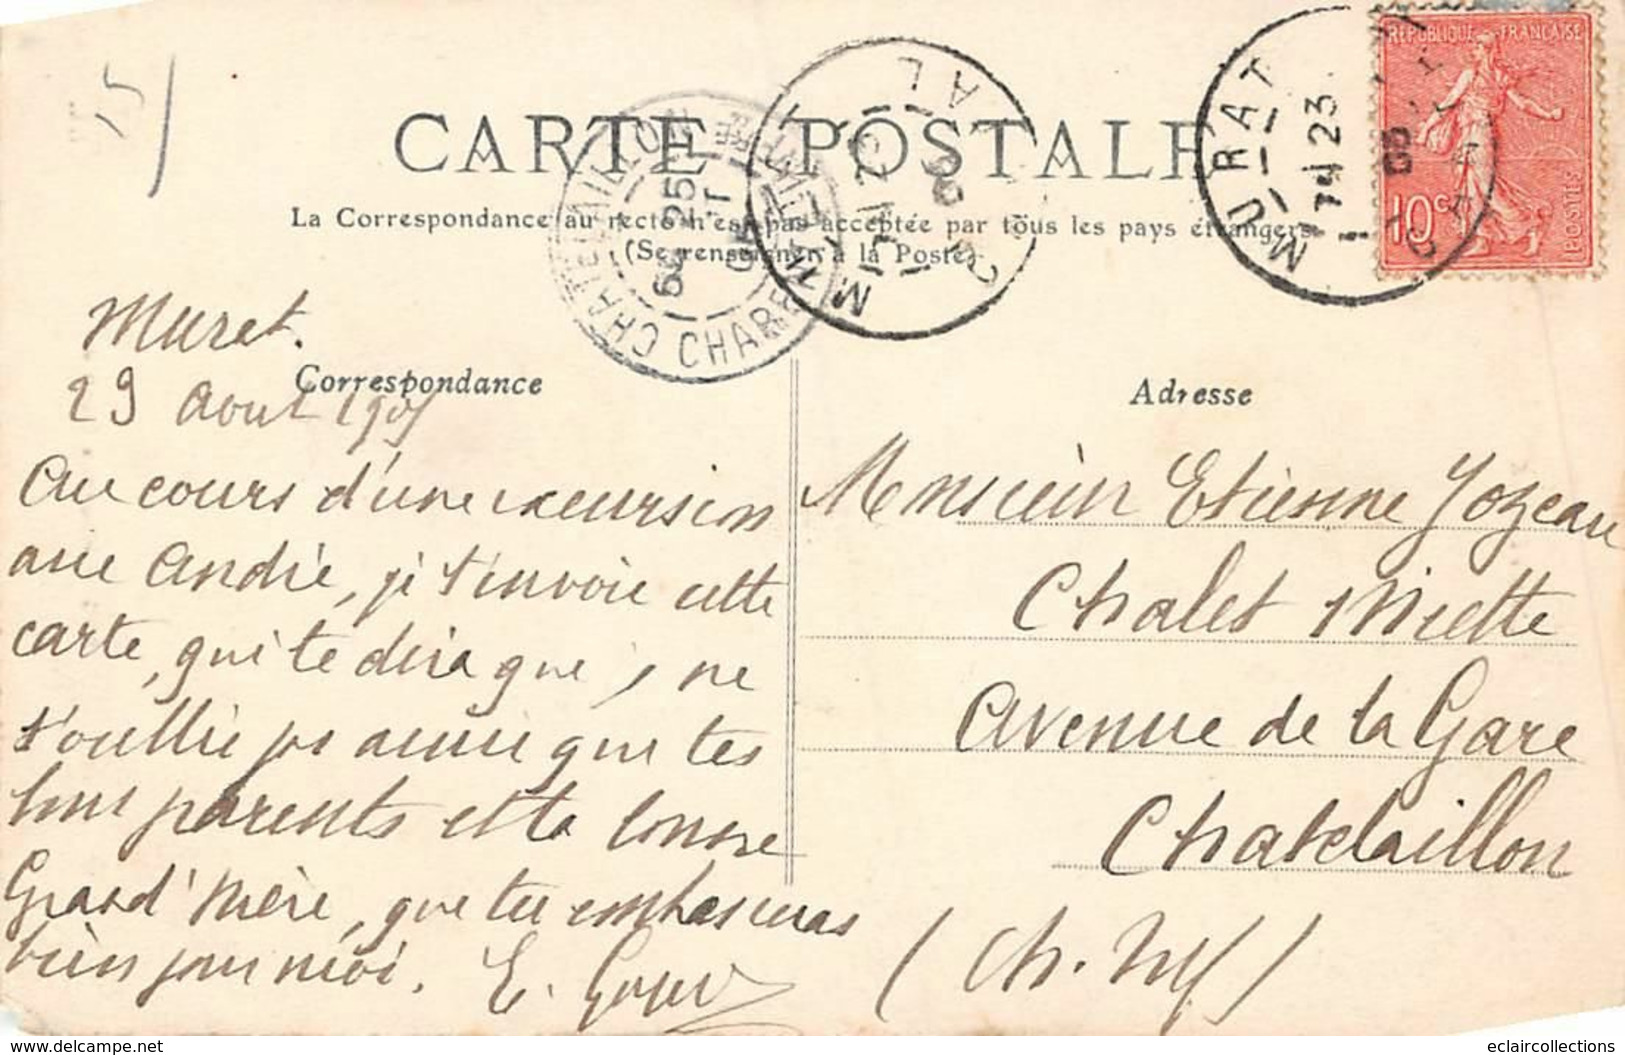 15/
CARTE POSTALE
La Correspondance au recto n'est pas acceptée par tous les pays étrangers
(Se renseigner à la Poste)
RÉPUBLIQUE FRANÇAISE
10c
POSTES
MURAT
CANTAL
23
MURAT
CANTAL
CHATELAILLON
CHARENTE INFÉRE
25
Correspondance
Adresse
Murat.
23 Aout 1905
Au cours d'une excursion
avec André, je t'envoie cette
carte, qui te dira que je ne
t'oublie pas ainsi que tes
bons parents et ta bonne
Grand'Mère, que tu embrasseras
bien pour moi. E.
Monsieur Etienne Jozeau
Chalet Miette
Avenue de la Gare
Chatelaillon
(Ch. Inf)
delcampe.net
eclaircollections